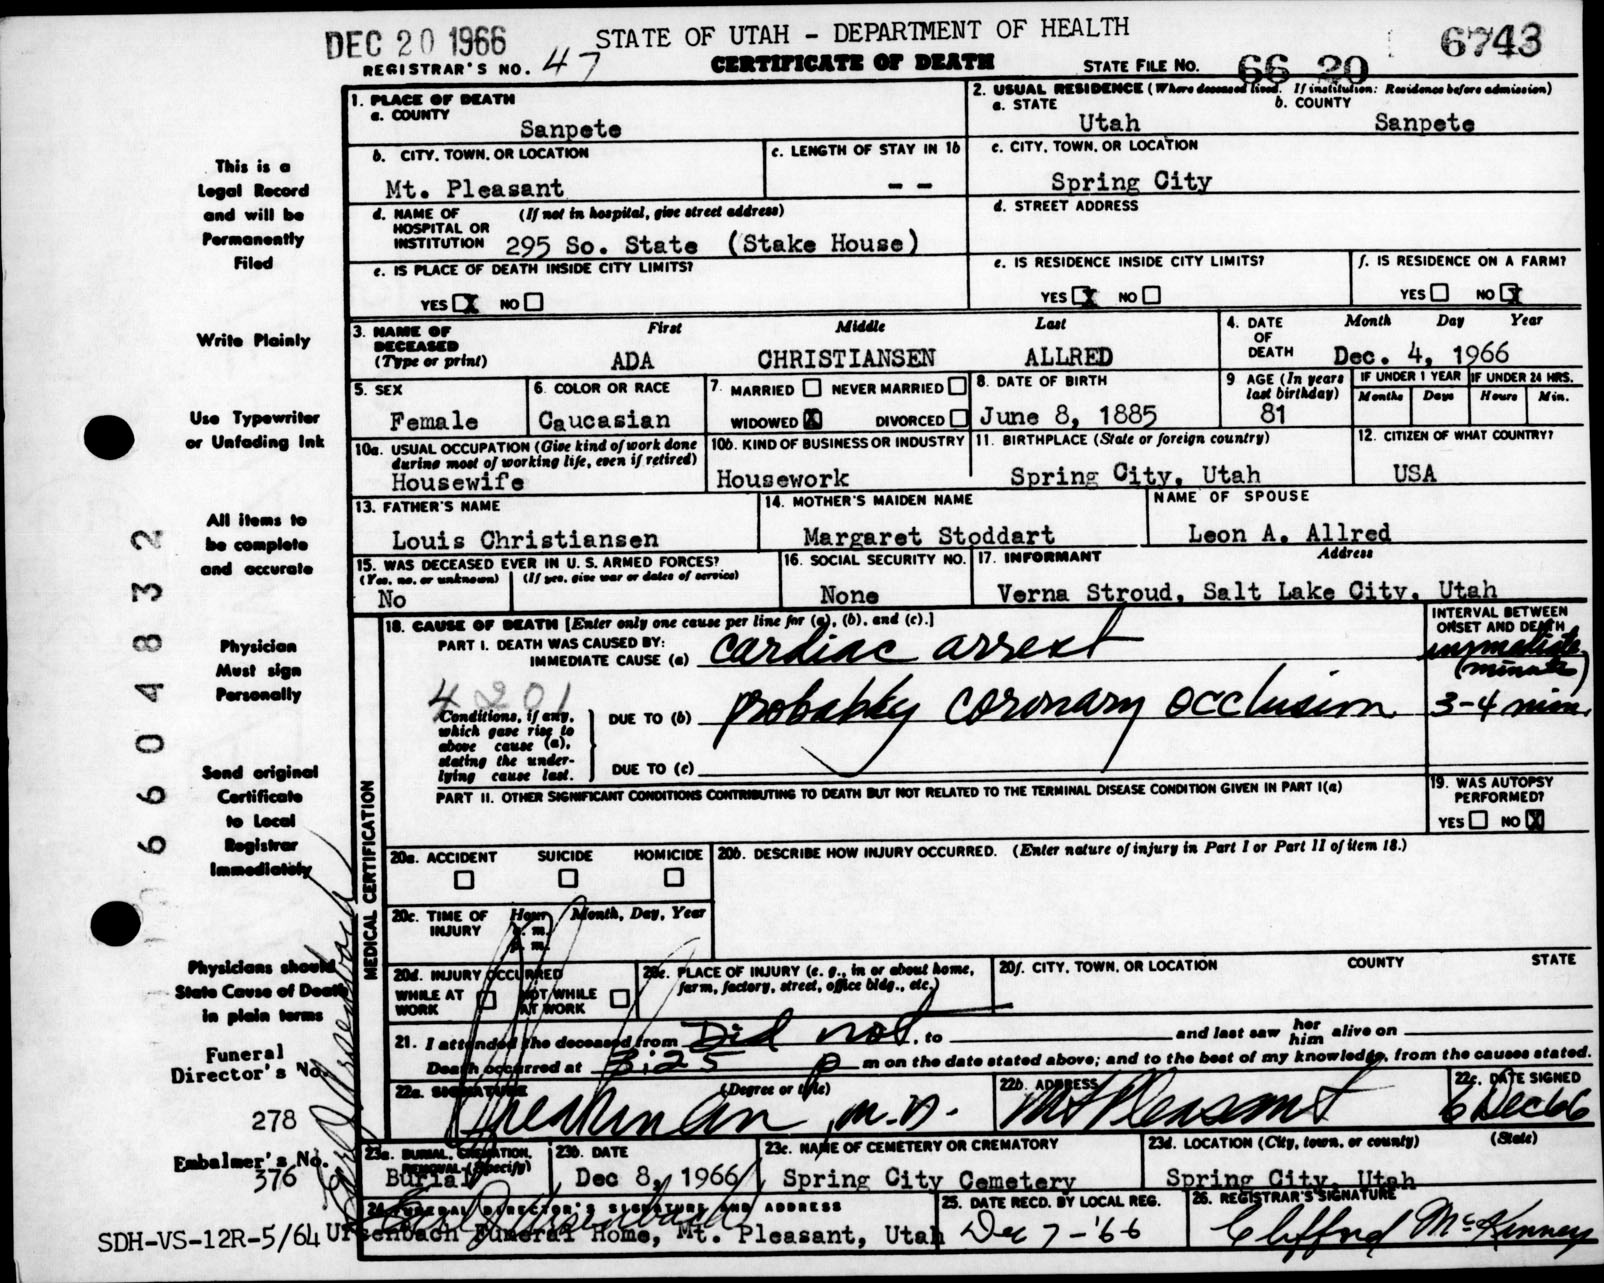 DEC 20 1966
STATE OF UTAH - DEPARTMENT OF HEALTH
6743
REGISTRAR'S NO. 47
CERTIFICATE OF DEATH
STATE FILE NO. 66 20
1. PLACE OF DEATH
a. COUNTY
Sanpete
2. USUAL RESIDENCE (Where deceased lived. If institution: Residence before admission)
a. STATE
b. COUNTY
Utah
Sanpete
b. CITY, TOWN, OR LOCATION
Mt. Pleasant
c. LENGTH OF STAY IN 1b
- -
c. CITY, TOWN, OR LOCATION
Spring City
d. NAME OF HOSPITAL OR INSTITUTION
(If not in hospital, give street address)
295 So. State (Stake House)
d. STREET ADDRESS
e. IS PLACE OF DEATH INSIDE CITY LIMITS?
YES X NO
e. IS RESIDENCE INSIDE CITY LIMITS?
YES X NO
f. IS RESIDENCE ON A FARM?
YES NO X
3. NAME OF DECEASED
(Type or print)
First Middle Last
ADA CHRISTIANSEN ALLRED
4. DATE OF DEATH
Month Day Year
Dec. 4, 1966
5. SEX
Female
6. COLOR OR RACE
Caucasian
7. MARRIED NEVER MARRIED
WIDOWED X DIVORCED
8. DATE OF BIRTH
June 8, 1885
9 AGE (In years last birthday)
81
IF UNDER 1 YEAR
Months Days
IF UNDER 24 HRS.
Hours Min.
10a. USUAL OCCUPATION (Give kind of work done during most of working life, even if retired)
Housewife
10b. KIND OF BUSINESS OR INDUSTRY
Housework
11. BIRTHPLACE (State or foreign country)
Spring City, Utah
12. CITIZEN OF WHAT COUNTRY?
USA
13. FATHER'S NAME
Louis Christiansen
14. MOTHER'S MAIDEN NAME
Margaret Stoddart
NAME OF SPOUSE
Leon A. Allred
15. WAS DECEASED EVER IN U. S. ARMED FORCES?
(Yes, no, or unknown) (If yes, give war or dates of service)
No
16. SOCIAL SECURITY NO.
None
17. INFORMANT Address
Verna Stroud, Salt Lake City, Utah
18. CAUSE OF DEATH [Enter only one cause per line for (a), (b), and (c).]
INTERVAL BETWEEN ONSET AND DEATH
PART I. DEATH WAS CAUSED BY:
IMMEDIATE CAUSE (a) cardiac arrest
immediate
(minute)
4201
Conditions, if any, which gave rise to above cause (a), stating the underlying cause last.
DUE TO (b) probably coronary occlusion 3-4 min.
DUE TO (c)
PART II. OTHER SIGNIFICANT CONDITIONS CONTRIBUTING TO DEATH BUT NOT RELATED TO THE TERMINAL DISEASE CONDITION GIVEN IN PART I(a)
19. WAS AUTOPSY PERFORMED?
YES NO X
MEDICAL CERTIFICATION
20a. ACCIDENT SUICIDE HOMICIDE
20b. DESCRIBE HOW INJURY OCCURRED. (Enter nature of injury in Part I or Part II of item 18.)
20c. TIME OF INJURY
Hour Month, Day, Year
a. m.
p. m.
20d. INJURY OCCURRED
WHILE AT WORK NOT WHILE AT WORK
20e. PLACE OF INJURY (e. g., in or about home, farm, factory, street, office bldg., etc.)
20f. CITY, TOWN, OR LOCATION COUNTY STATE
21. I attended the deceased from Did not, to and last saw her him alive on
Death occurred at 3:25 p m on the date stated above; and to the best of my knowledge, from the causes stated.
22a. SIGNATURE (Degree or title)
M.D.
22b. ADDRESS
Mt Pleasant
22c. DATE SIGNED
6 Dec 66
23a. BURIAL, CREMATION, REMOVAL (Specify)
Burial
23b. DATE
Dec 8, 1966
23c. NAME OF CEMETERY OR CREMATORY
Spring City Cemetery
23d. LOCATION (City, town, or county) (State)
Spring City, Utah
24. FUNERAL DIRECTOR'S SIGNATURE AND ADDRESS
Ursenbach Funeral Home, Mt. Pleasant, Utah
25. DATE RECD. BY LOCAL REG.
Dec 7-'66
26. REGISTRAR'S SIGNATURE
Clifford McKenney
This is a
Legal Record
and will be
Permanently
Filed
Write Plainly
Use Typewriter
or Unfading Ink
All items to
be complete
and accurate
Physician
Must sign
Personally
Send original
Certificate
to Local
Registrar
Immediately
Physicians should
State Cause of Death
in plain terms
Funeral
Director's No.
278
Embalmer's No.
376
SDH-VS-12R-5/64
66 04832